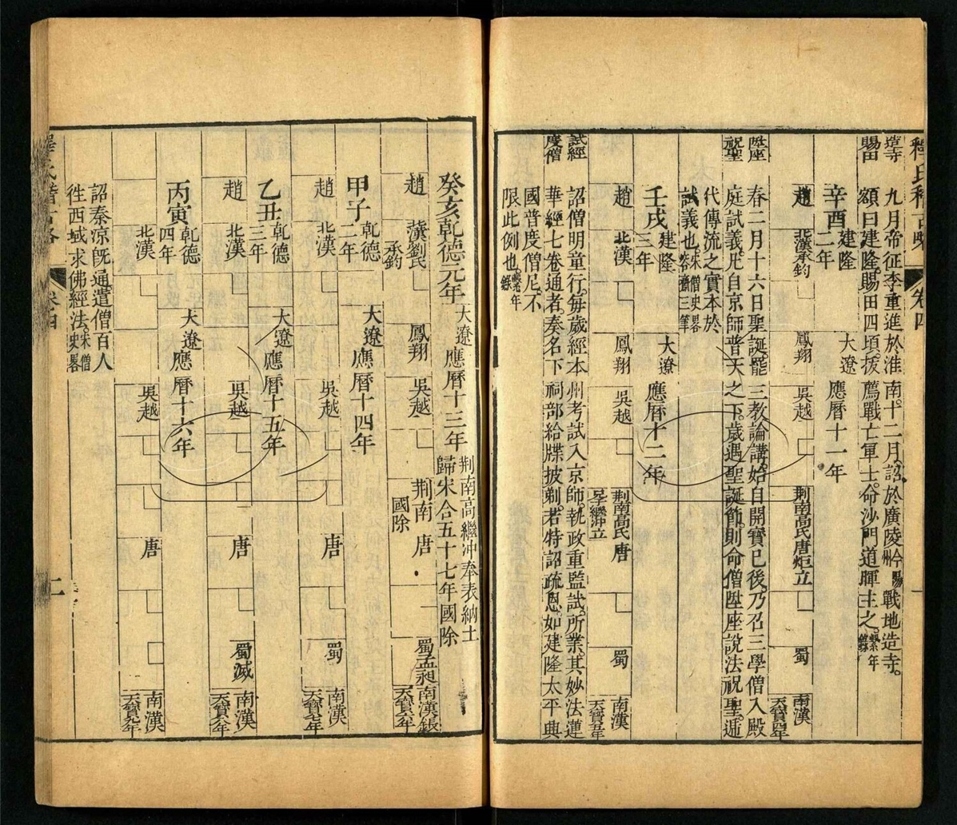 釋氏稽古略
卷四
造寺
賜田
九月帝征李重進於淮南十二月詔於廣陵戰地造寺
額曰建隆賜田四頃撥薦戰亡軍士命沙門道暉主之
辛酉
建隆
二年
大遼
應曆十一年
趙
北漢承鈞
鳳翔
吳越
荆南高氏
唐煜立
蜀
南漢
陞座
祝聖
春二月十六日聖誕罷三教論講始自開寶已後乃召三學僧入殿
庭試義凡自京師普天之下歲遇聖誕節則命僧陞座說法祝聖遞
代傳流之實本於
試義也
壬戌
建隆
三年
大遼
應曆十二年
趙
北漢
鳳翔
吳越
荆南高氏
繼冲立
唐
蜀
南漢
試經
度僧
詔僧明童行每歲經本州考試入京師執政重監試所業其妙法蓮
華經七卷通者奏名下祠部給牒披剃若特詔疏恩如建隆太平興
國普度僧尼不
限此例也
癸亥乾德元年
大遼應曆十三年
荆南高繼冲奉表納土
歸宋合五十七年國除
趙
漢劉氏
承鈞
鳳翔
吳越
荆南
國除
唐
蜀孟昶
南漢
甲子
乾德
二年
大遼
應曆十四年
趙
北漢
吳越
唐
蜀
南漢
乙丑
乾德
三年
大遼
應曆十五年
趙
北漢
吳越
唐
蜀滅
南漢
丙寅
乾德
四年
大遼
應曆十六年
趙
北漢
吳越
唐
南漢
詔秦凉旣通遣僧百人
徃西域求佛經法
釋氏稽古略
卷四
二